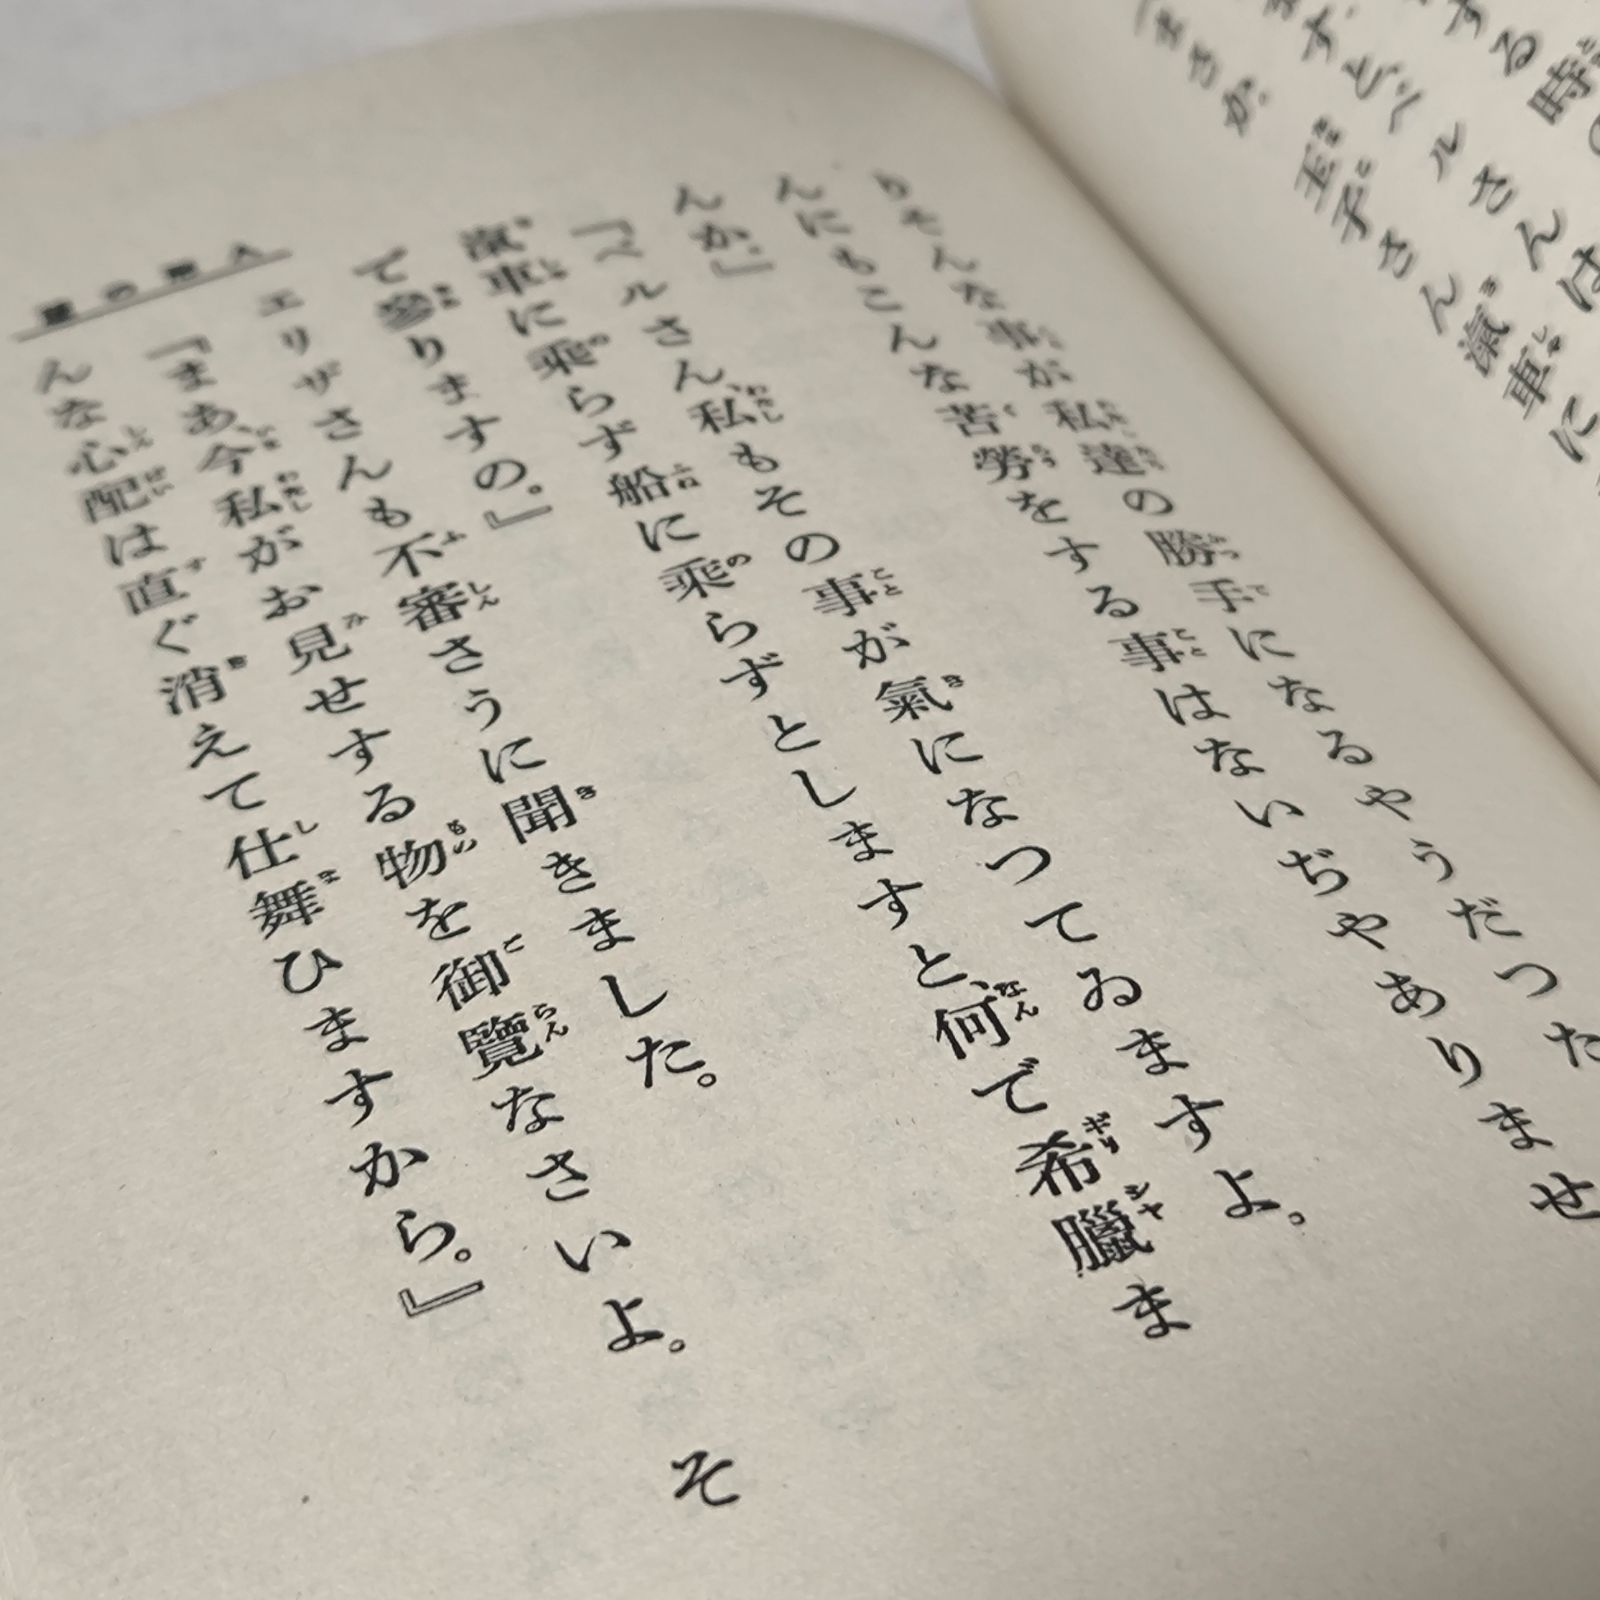 する時の
ます、とベルさんは
『まさか、玉子さん瀛車に
りそんな事が私達の勝手になるやうだつた
んにもこんな苦勞をする事はないぢやありませ
んか。』
『ベルさん、私もその事が氣になつてゐますよ。
瀛車に乘らず船に乘らずとしますと、何で希臘ま
で參りますの。』
エリザさんも不審さうに聞きました。
『まあ、今私がお見せする物を御覽なさいよ。そ
んな心配は直ぐ消えて仕舞ひますから。』